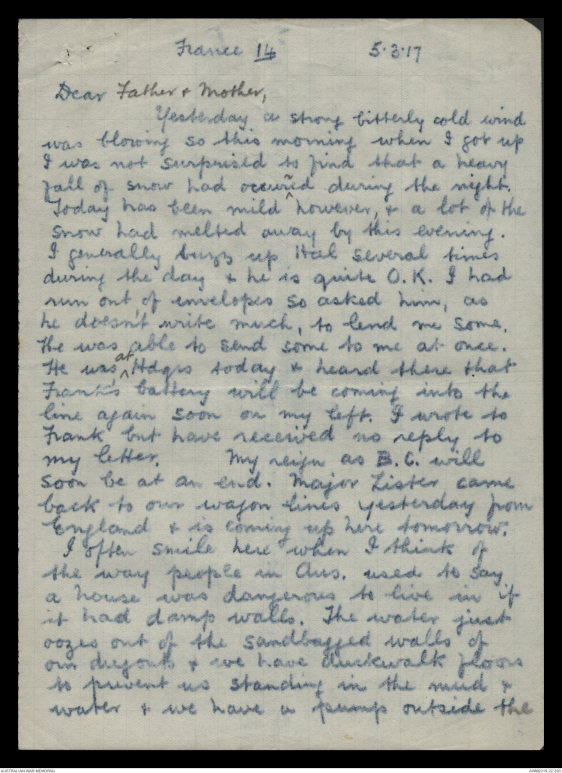 France 14 5.3.17
Dear Father & Mother,
Yesterday a strong bitterly cold wind
was blowing so this morning when I got up
I was not surprised to find that a heavy
fall of snow had occurred during the night.
Today has been mild however, & a lot of the
snow had melted away by this evening.
I generally buzz up Hal several times
during the day & he is quite O.K. I had
run out of envelopes so asked him, as
he doesn't write much, to lend me some.
He was able to send some to me at once.
He was at Hdqrs today & heard there that
Frank's battery will be coming into the
line again soon on my left. I wrote to
Frank but have received no reply to
my letter. My reign as B.C. will
soon be at an end. Major Lister came
back to our wagon lines yesterday from
England & is coming up here tomorrow.
I often smile here when I think of
the way people in Aus. used to say
a house was dangerous to live in if
it had damp walls. The water just
oozes out of the sandbagged walls of
our dugouts & we have duckwalk floors
to prevent us standing in the mud &
water & we have a pump outside the
AUSTRALIAN WAR MEMORIAL